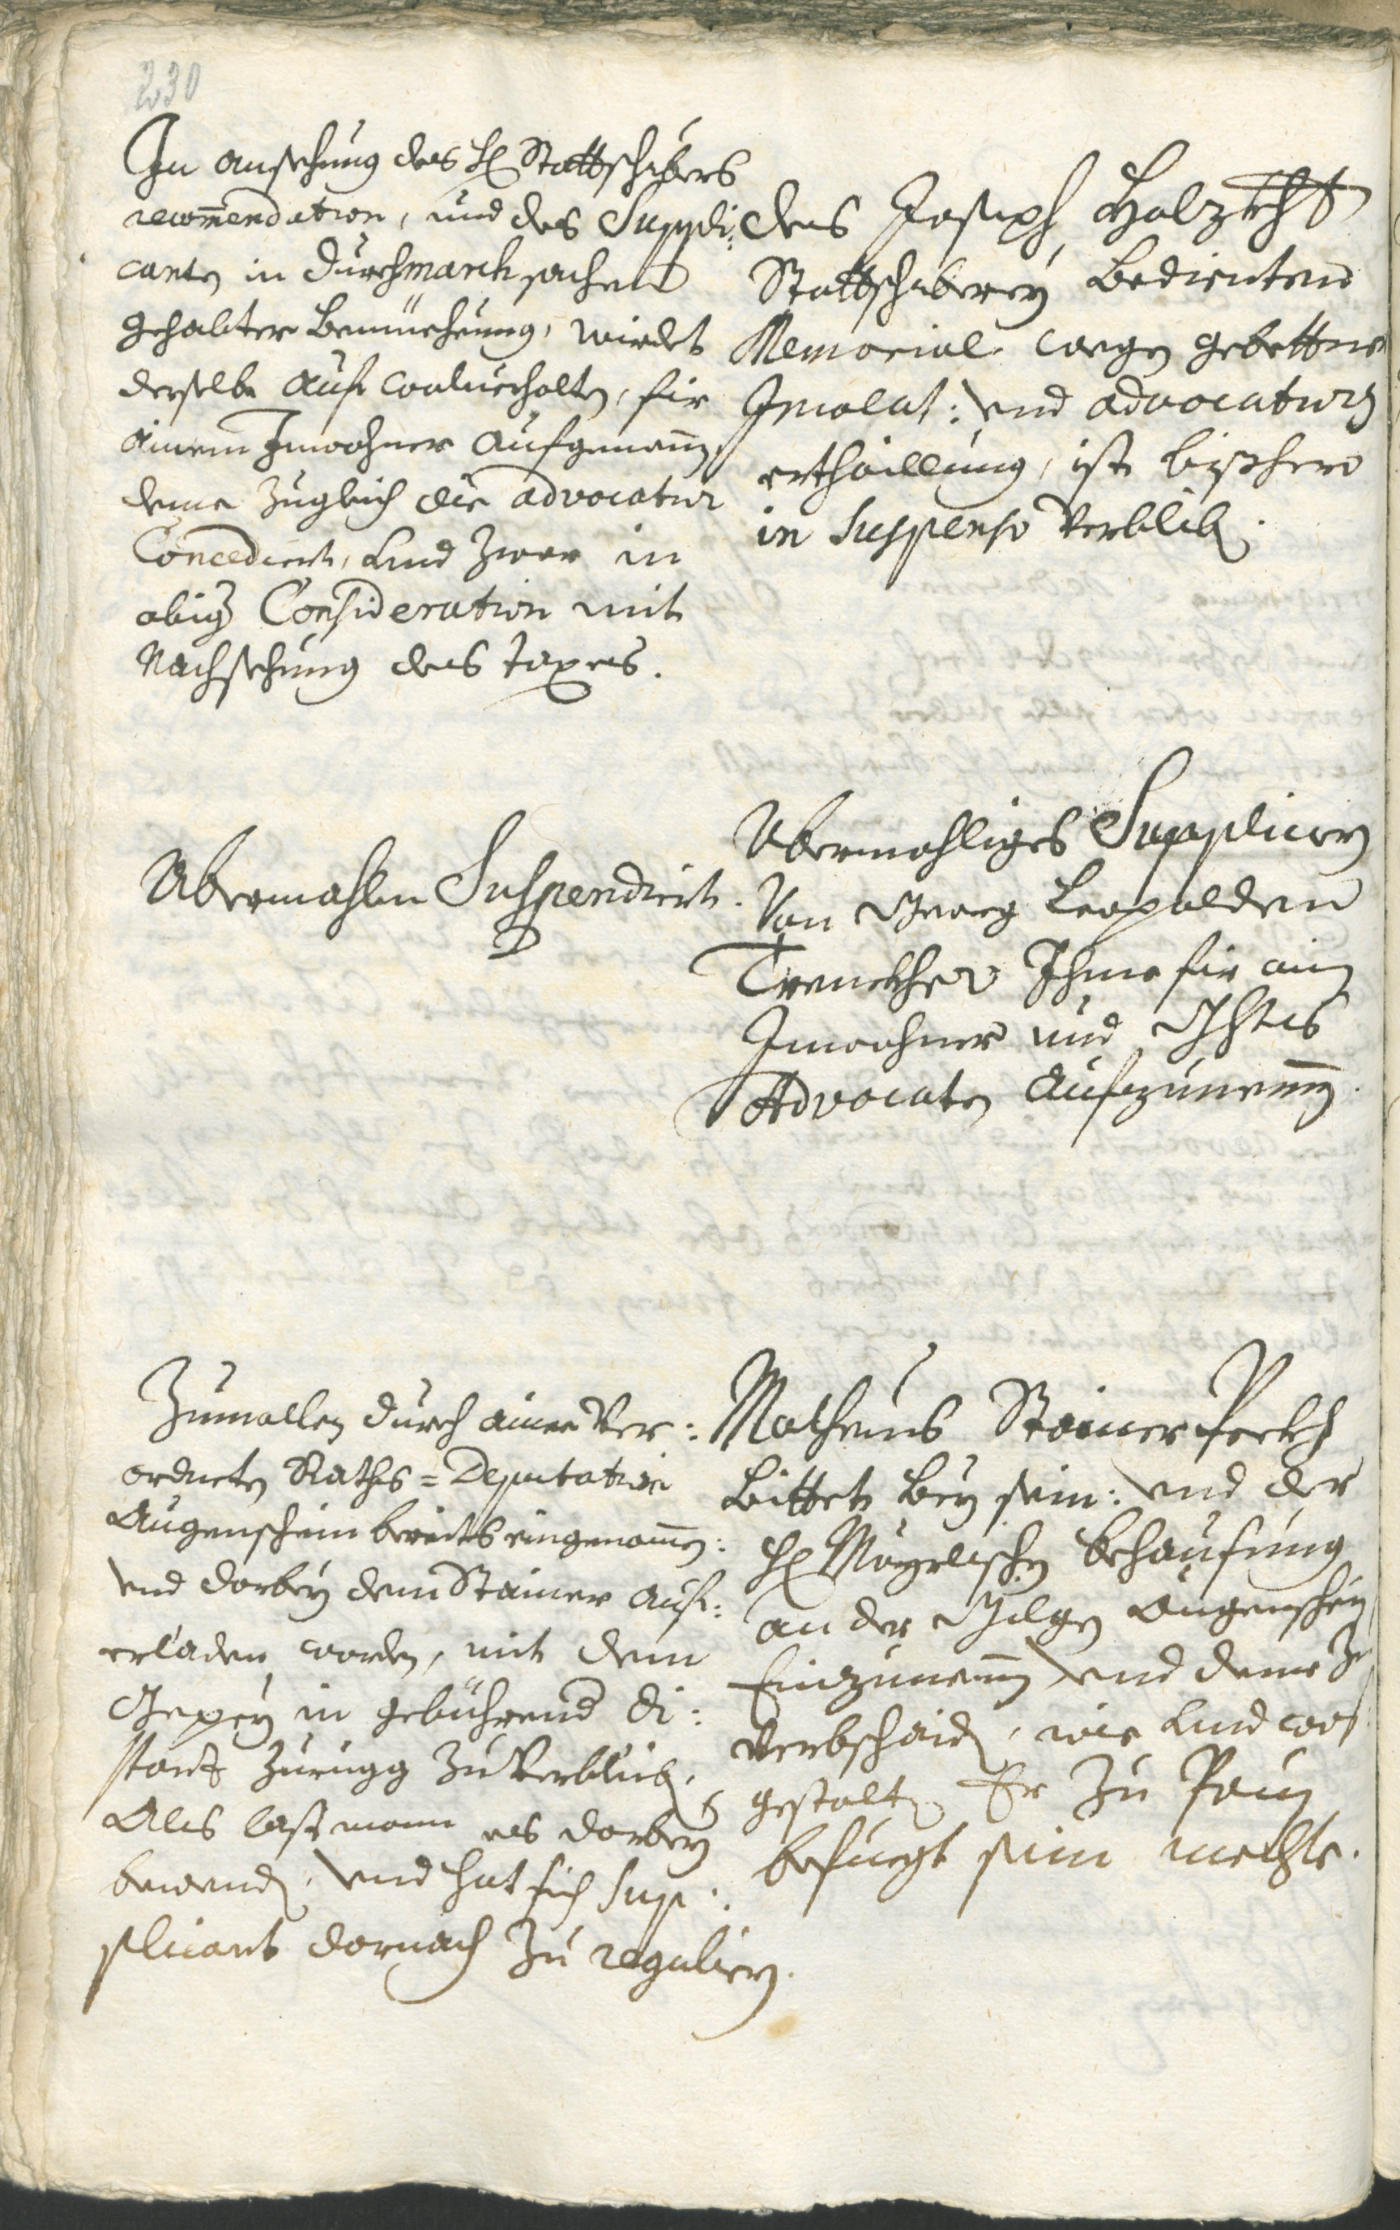 230
In ansehung des H Stattschribers
recom̄endation, und des Suppli:
canten in durchmarch sachen
gehabter bemüehung, wirdet
derselbe auf wohluerhalten, für
ainem Inwohner aufgenom̄en,
deme zugleich die advocatur
Concediert, und zwar in
obiger Consideration mit
Nachsehung des taxes.
des Joseph Holzkhnecht
Stattschriberey bedientens
Memorial wegen gebettner
Incolat: und advocaturs
erthaillung, ist bisshero
in suspenso verbliben.
Abermahlen Suspendiert.
Abermahliges Suppliciern
Von Georg Leopolden
Ihme für ain
Inwohner und Ghts
Advocaten aufzunem̄en.
Zumallen durch aine Ver:
ordnete Raths=Deputation
Augenschein bereits eingenom̄en:
und darbey dem Stainer auf:
erladen worden, mit dem
Gepey in gebührend di:
stanz zurugg zu verbleiben,
Als last mann es darbey
bewenden, und hat sich Sup:
plicant darnach zu regulieren.
Matheus Stainer Pöckh
bittet bey sein: und der
H Mayrlischen behausung
an der Gilgen augenschein
Einzunem̄en und deme zu
verbschaiden, wie und was
gestalten Er zu Pauen
befuegt sein mechte.